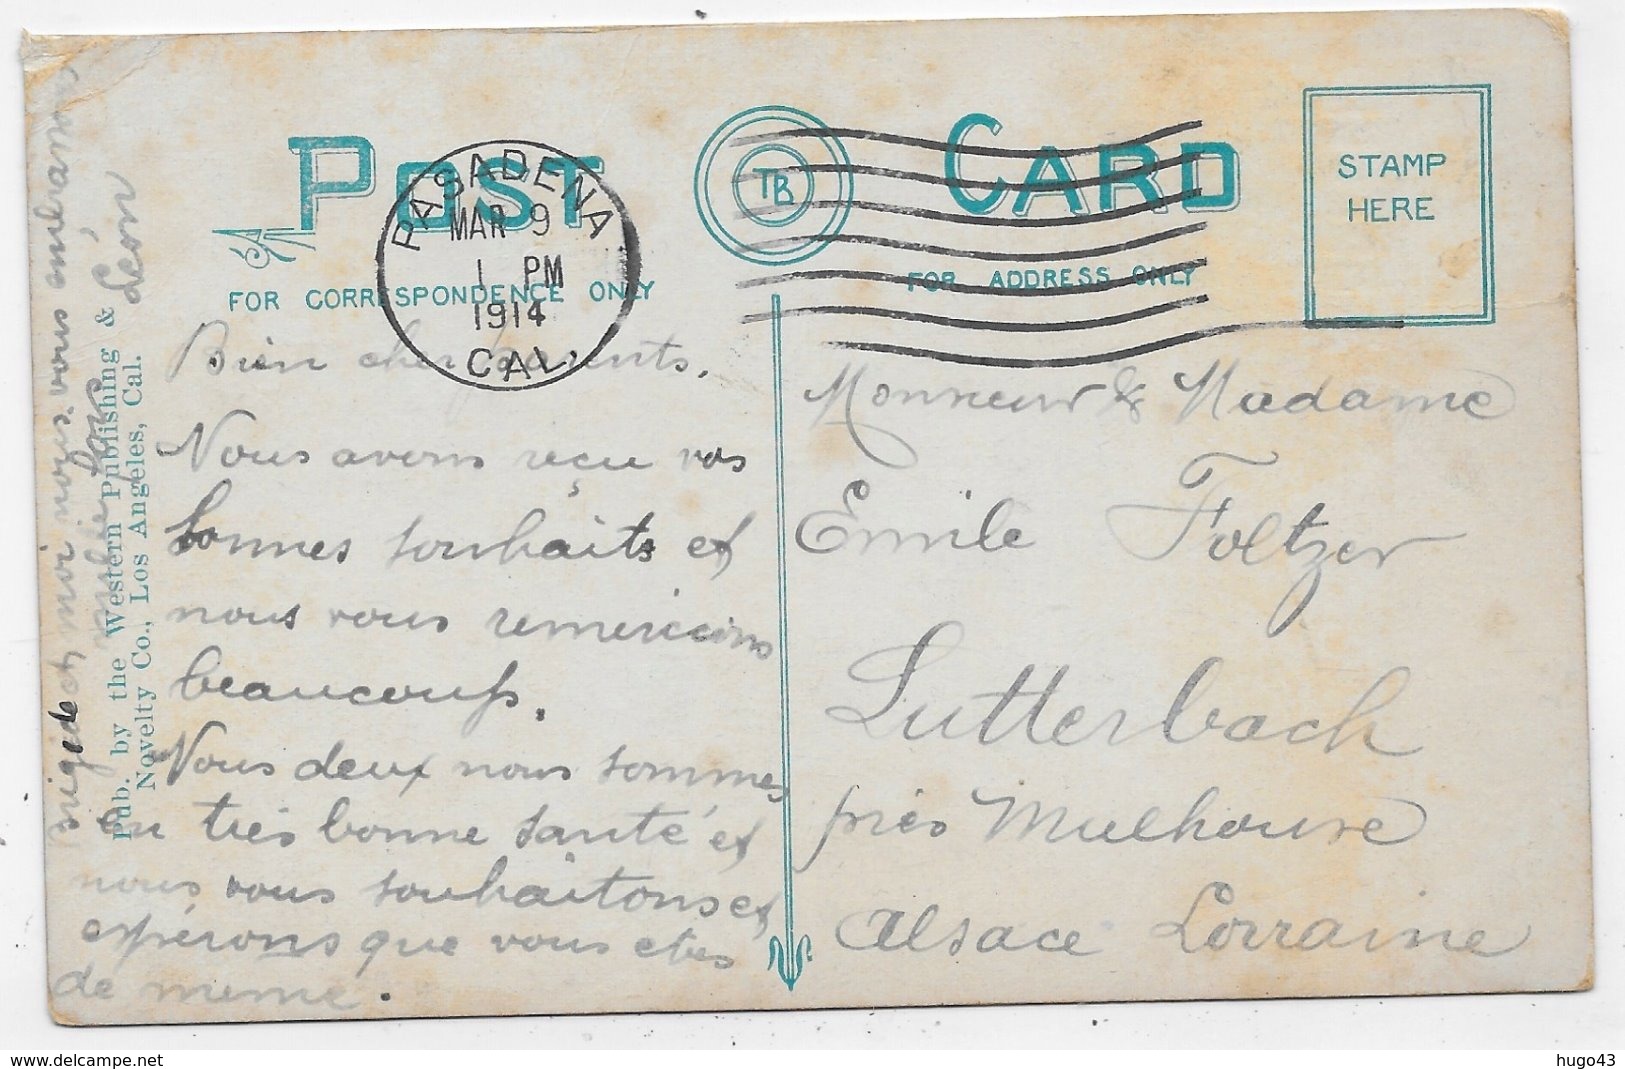 POST CARD
TB
STAMP
HERE
PASADENA
MAR 9
1 PM
1914
CAL.
FOR CORRESPONDENCE ONLY
FOR ADDRESS ONLY
Bien chers parents.
Nous avons reçu vos
bonnes souhaits et
nous vous remercions
beaucoup.
Nous deux nous sommes
en très bonne santé et
nous vous souhaitons et
espérons que vous etes
de meme.
et moi nous vous embrassons
fois
Léon
Pub. by the Western Publishing &
Novelty Co., Los Angeles, Cal.
Monsieur & Madame
Emile Foltzer
Lutterbach
près Mulhouse
Alsace Lorraine
www.delcampe.net
hugo43